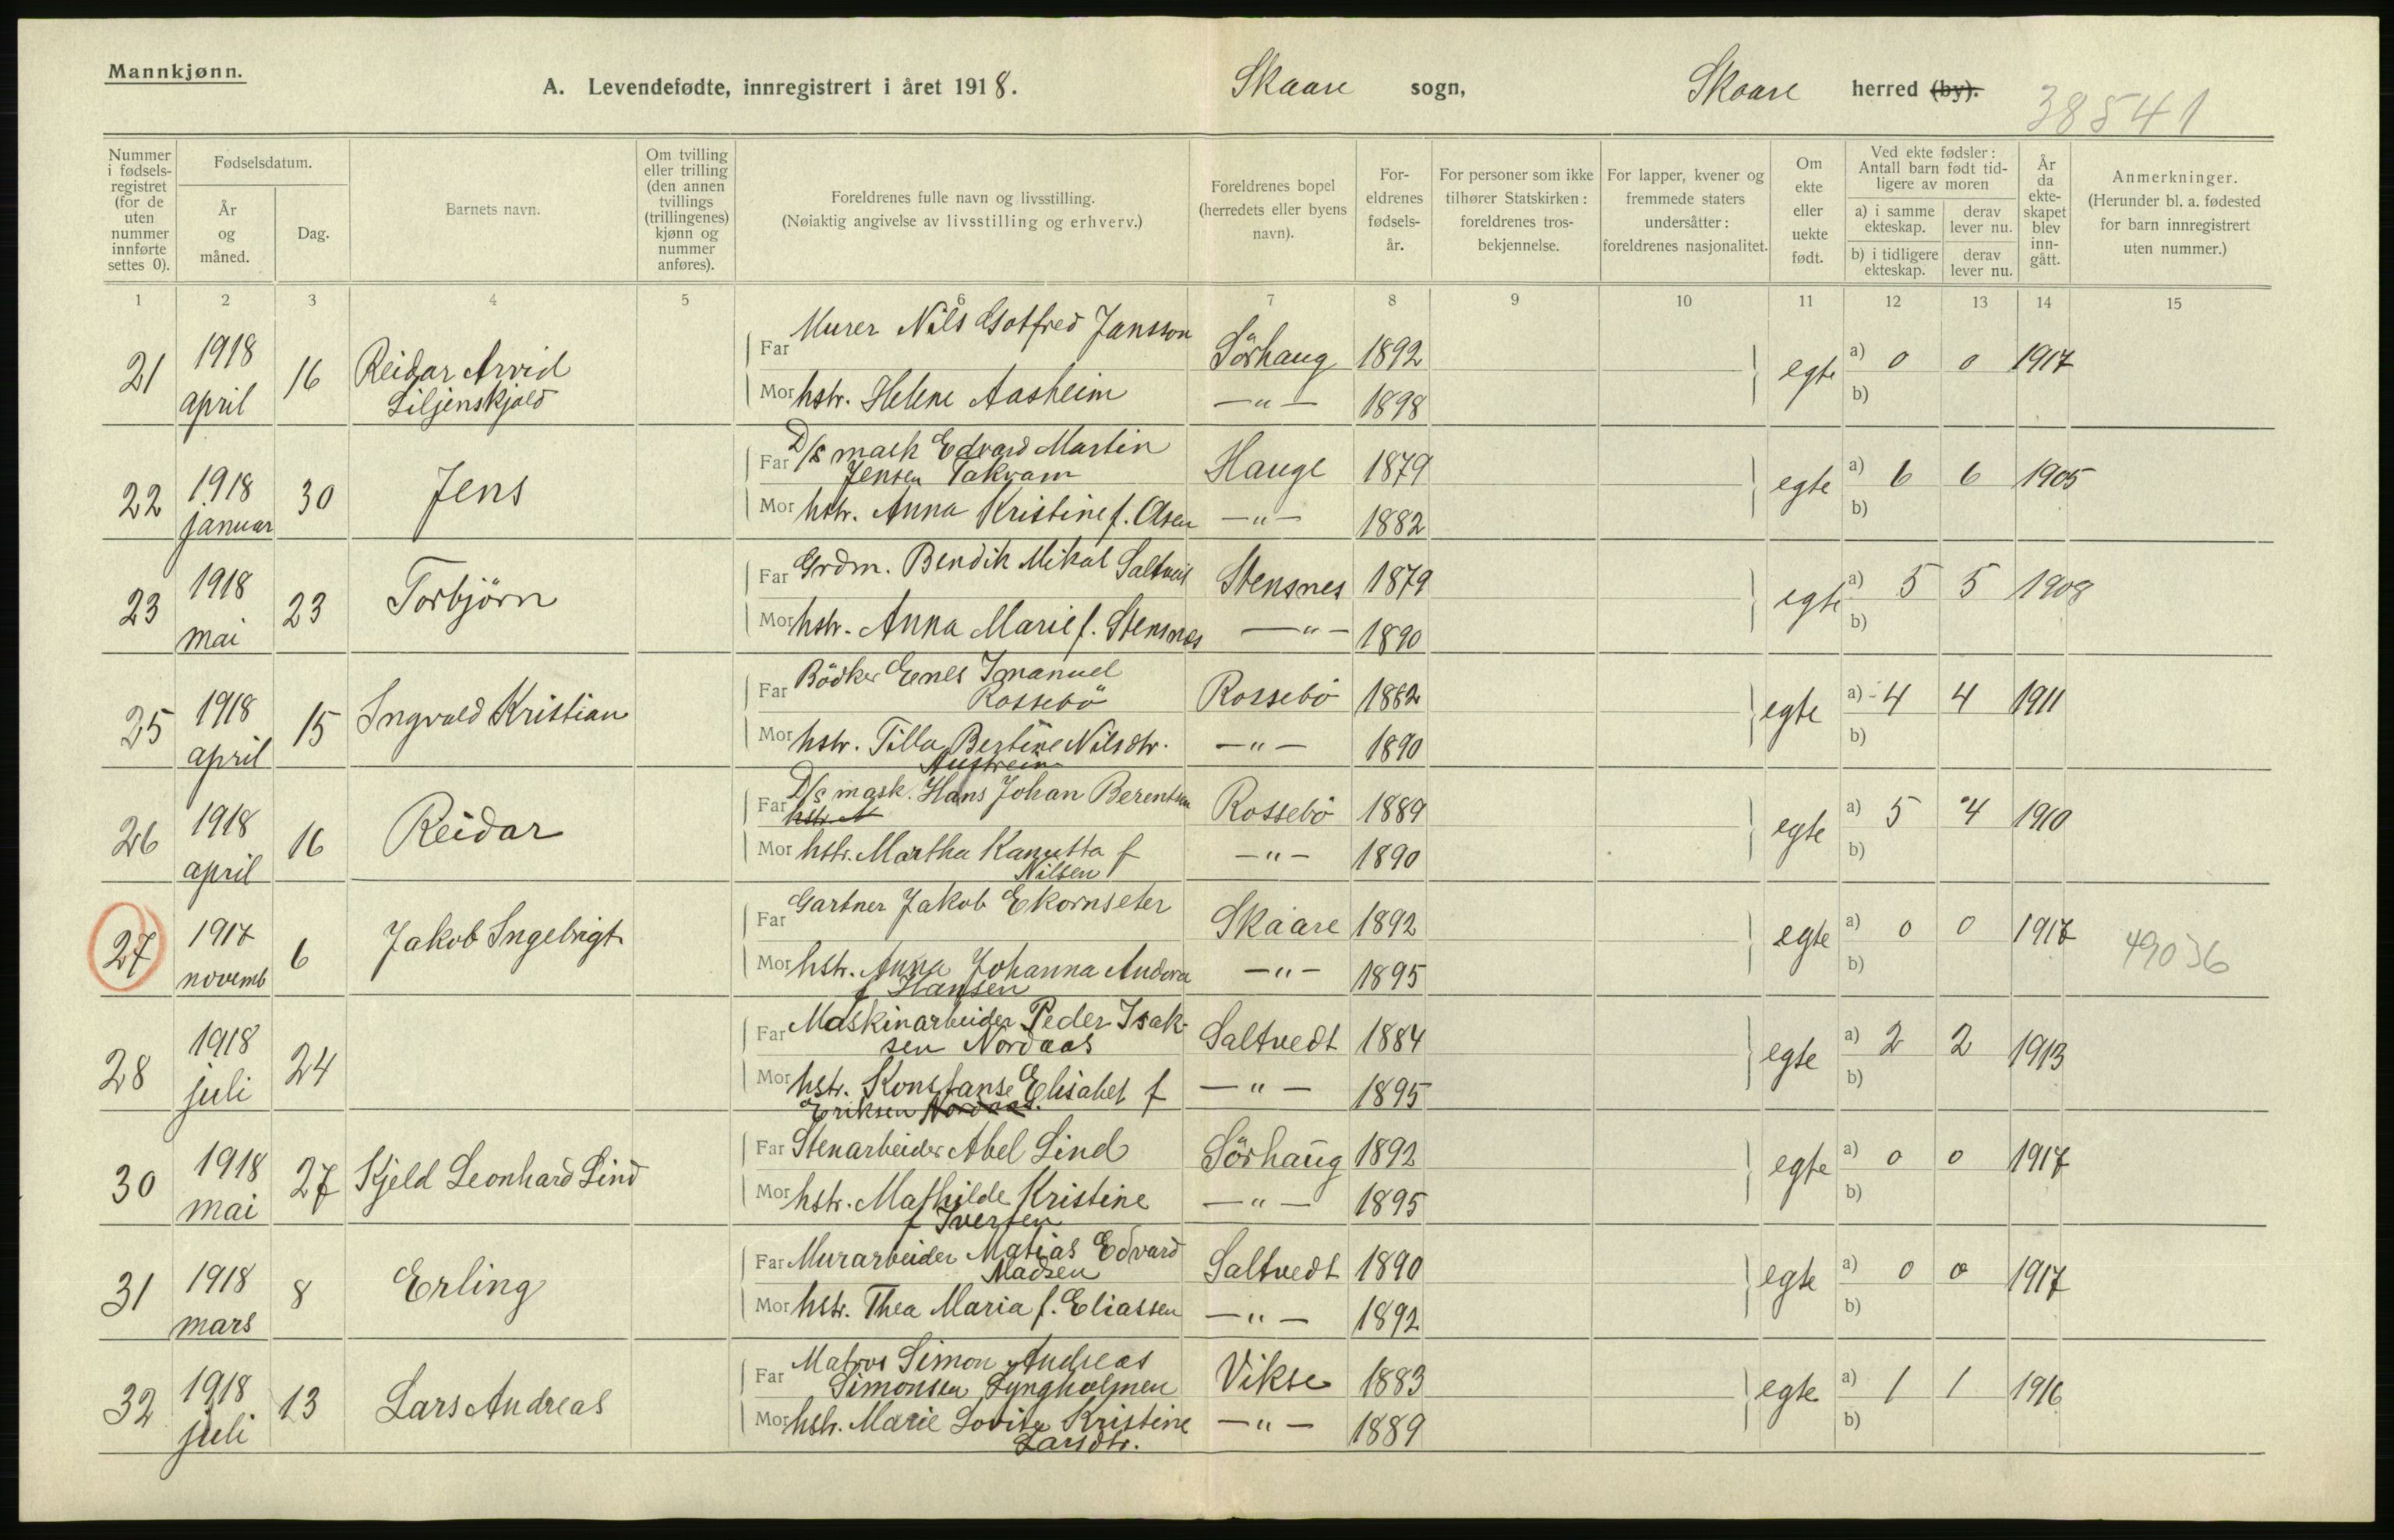 Mannkjønn.
A. Levendefødte, innregistrert i året 1918. Skaare sogn, Skaare herred (by).
38541
Nummer i fødselsregistret (for de uten nummer innførte settes 0).
Fødselsdatum.
År og måned.
Dag.
Barnets navn.
Om tvilling eller trilling (den annen tvillings (trillingenes) kjønn og nummer anføres).
Foreldrenes fulle navn og livsstilling.
(Nøiaktig angivelse av livsstilling og erhverv.)
Foreldrenes bopel (herredets eller byens navn).
Foreldrenes fødselsår.
For personer som ikke tilhører Statskirken: foreldrenes trosbekjennelse.
For lapper, kvener og fremmede staters undersåtter: foreldrenes nasjonalitet.
Om ekte eller uekte født.
Ved ekte fødsler: Antall barn født tidligere av moren
a) i samme ekteskap.
derav lever nu.
b) i tidligere ekteskap.
derav lever nu.
År da ekteskapet blev inngått.
Anmerkninger.
(Herunder bl. a. fødested for barn innregistrert uten nummer.)
1 2 3 4 5 6 7 8 9 10 11 12 13 14 15
21 1918 april 16 Reidar Arvid Liljenskjold
Far Murer Nils Gotfred Jansson Sörhaug 1892 egte a) 0 0 1917
Mor hstr. Helene Aasheim —"— 1898 b)
22 1918 januar 30 Jens
Far D/s mask Edvard Martin Jensen Takvam Hauge 1879 egte a) 6 6 1905
Mor hstr. Anna Kristine f. Olsen —"— 1882 b)
23 1918 mai 23 Torbjörn
Far Grdm. Bendik Mikal Saltveit Stensnes 1879 egte a) 5 5 1908
Mor hstr. Anna Marie f. Stensnes —"— 1890 b)
25 1918 april 15 Ingvald Kristian
Far Bödker Enes Imanuel Rossebö Rossebö 1882 egte a) 4 4 1911
Mor hstr. Tilla Bertine Nilsdtr. Austreim —"— 1890 b)
26 1918 april 16 Reidar
Far D/s mask. Hans Johan Berentsen Rossebö 1889 egte a) 5 4 1910
Mor hstr. Martha Kanutta f Nilsen —"— 1890 b)
27 1917 novemb 6 Jakob Ingebrigt
Far Gartner Jakob Ekornseter Skaare 1892 egte a) 0 0 1917 49036
Mor hstr. Anna Johanna Andora f Hansen —"— 1895 b)
28 1918 juli 24
Far Maskinarbeider Peder Isaksen Nordaas Saltvedt 1884 egte a) 2 2 1913
Mor hstr. Konstanse Elisabet f Eriksen Nordaas. —"— 1895 b)
30 1918 mai 27 Kjeld Leonhard Lind
Far Stenarbeider Abel Lind Sörhaug 1892 egte a) 0 0 1917
Mor hstr. Mathilde Kristine f Iversen —"— 1895 b)
31 1918 mars 8 Erling
Far Murarbeider Matias Edvard Madsen Saltvedt 1890 egte a) 0 0 1917
Mor hstr. Thea Maria f. Eliassen —"— 1892 b)
32 1918 juli 13 Lars Andreas
Far Matros Simon Andreas Simonsen Lyngholmen Vikse 1883 egte a) 1 1 1916
Mor hstr. Marie Lovise Kristine Larsdtr. —"— 1889 b)